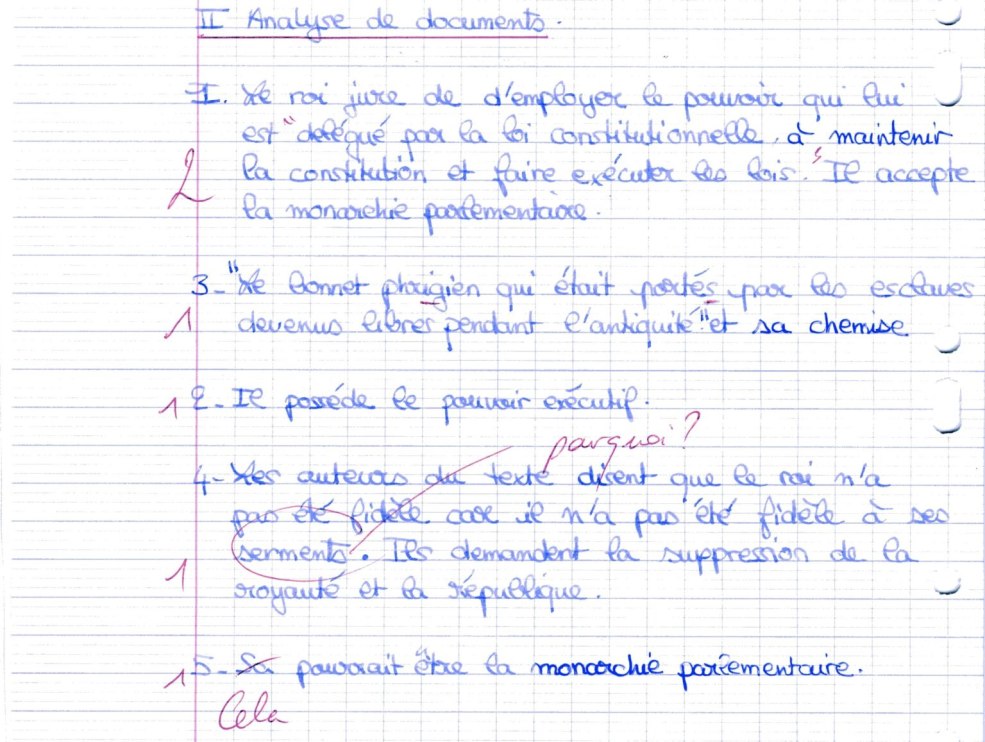 II Analyse de documents.
I. Le roi jure de d'employer le pouvoir qui lui
est "délégué par la loi constitutionnelle, à maintenir
2 la constitution et faire exécuter les lois." Il accepte
la monarchie parlementaire.
3- "Le bonnet phrigien qui était portés par les esclaves
1 devenus libres pendant l'antiquité" et sa chemise
1 2- Il posséde le pouvoir exécutif.
parquoi?
4- Les auteurs du texte disent que le roi n'a
pas été fidèle car il n'a pas été fidèle à ses
serments. Ils demandent la suppression de la
1 royauté et la république.
1 5- Sa pourrait être la monarchie parlementaire.
Cela